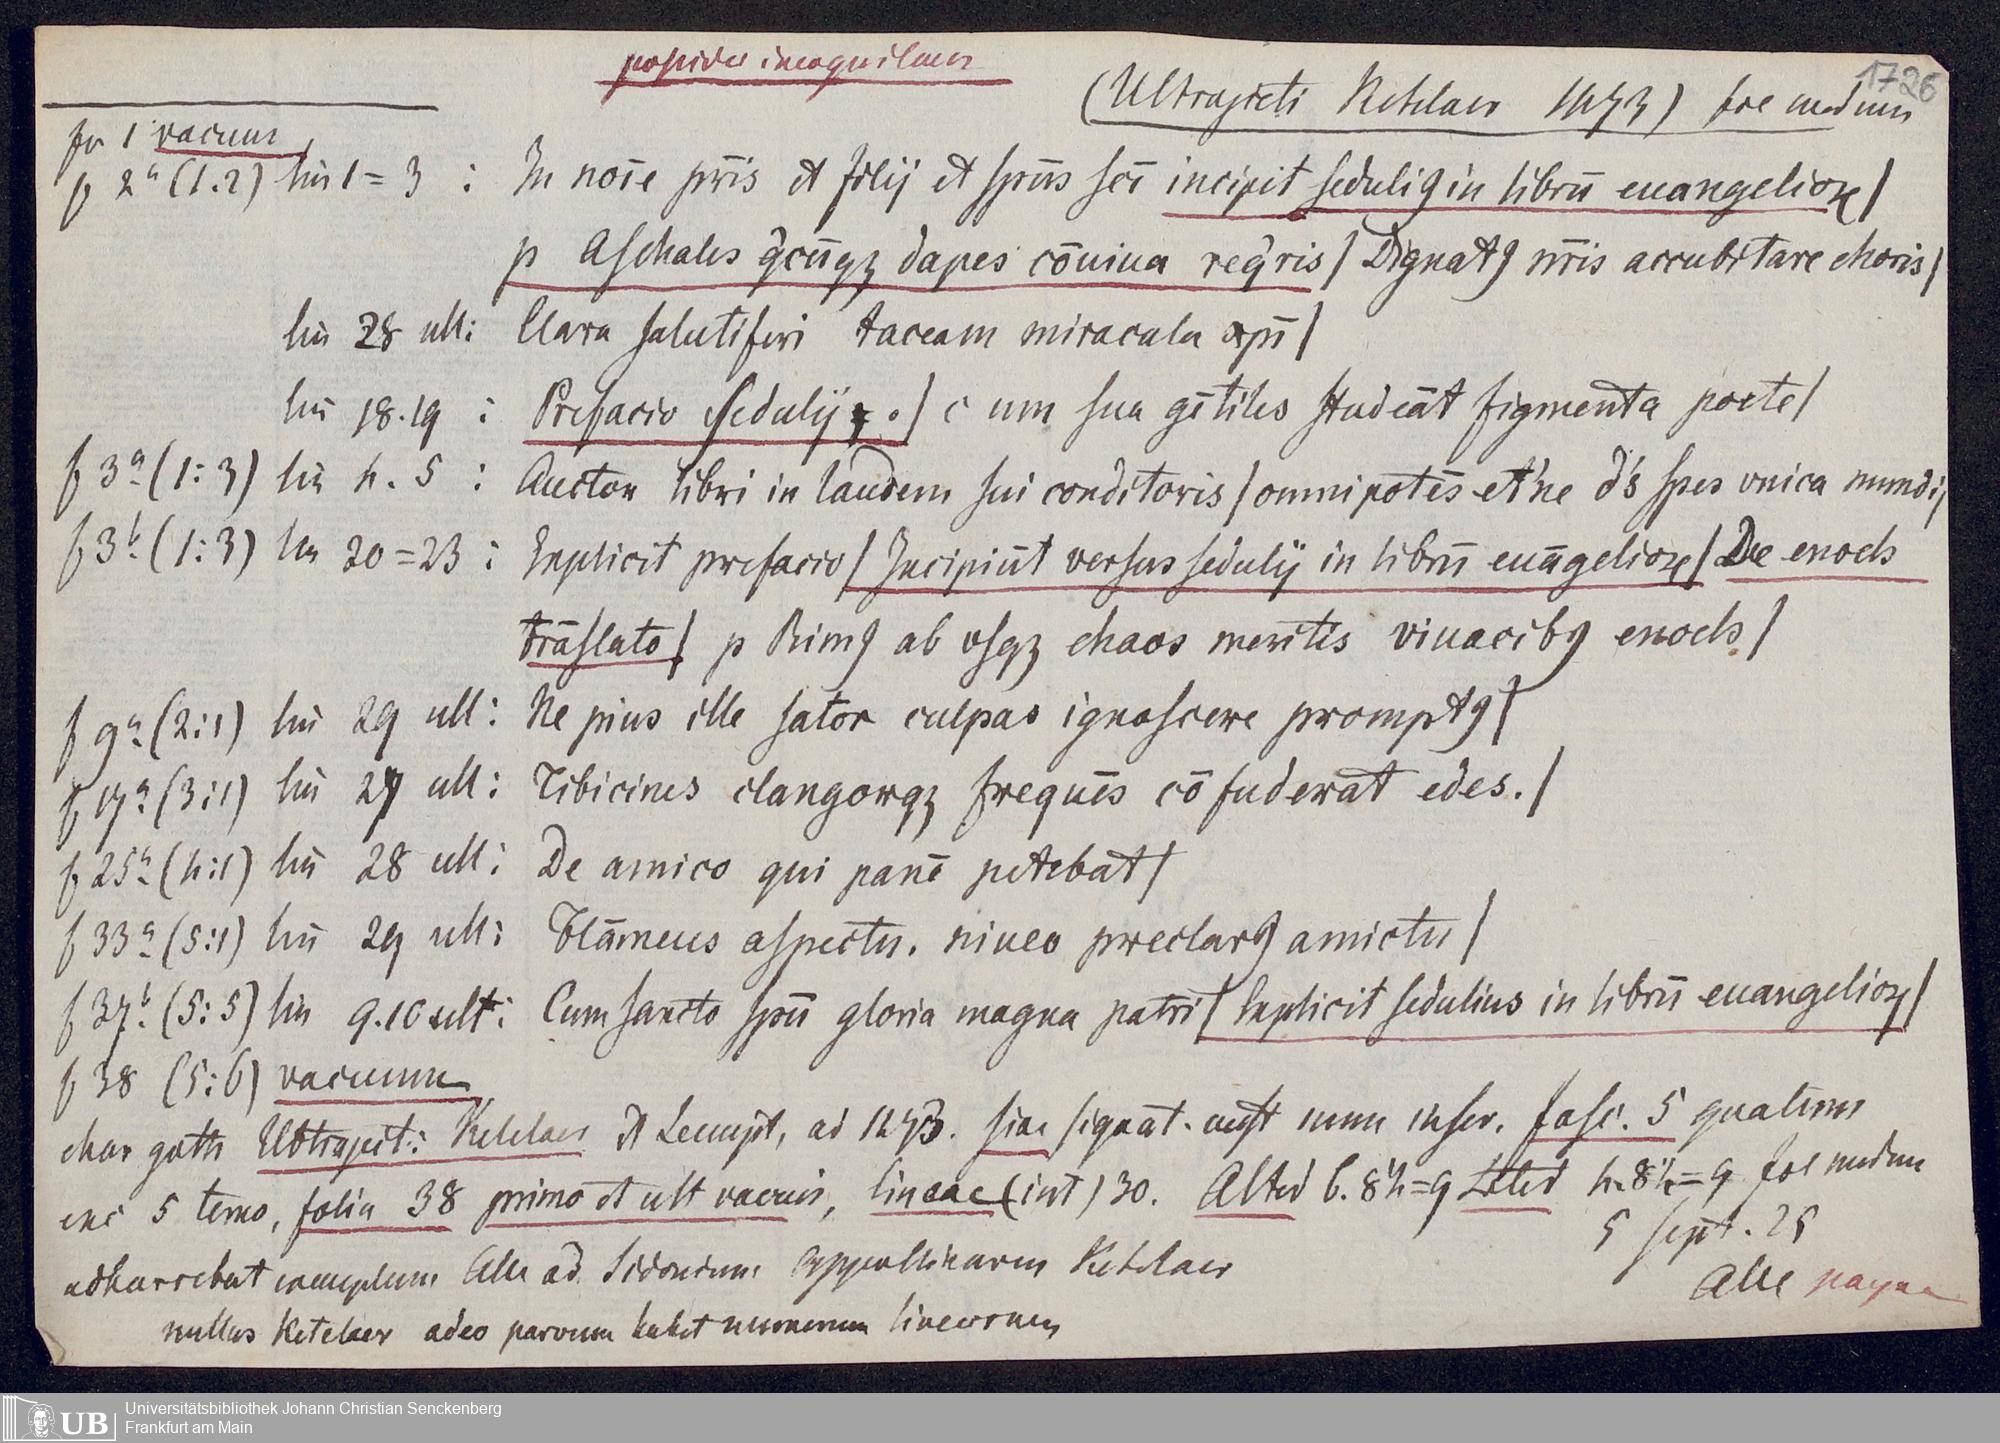 1726
(Ultrajecti Ketelaer 1473) fol
fo 1 vacuum
f 2a (1.2) lin 1=3 : In noīe pr̄is et filij et spūs scī incipit seduliꝯ in librū euangelioꝝ/
p Aschales ꝗcūqꝫ dapes cōuiua reꝗris/ Dignatꝯ nr̄is accubitare choris/
lin 28 ult: Clara salutiferi taceam miracula xp̄i/
lin 18.19 : Prefacio Sedulij ./ c um sua gētiles studeāt figmenta poete/
f 3a (1:3) lin 4.5 : Auctor libri in laudem sui conditoris/omnipotēs et'ne d's spes vnica mundi/
f 3b (1:3) lin 20=23 : Explicit prefacio/ Incipiūt versus sedulij in librū euāgelioꝝ/ De enoch
trāslato/ p Rimꝯ ab vsqꝫ chaos meritis viuacibꝯ enoch/
f 9a (2:1) lin 29 ult: Ne pius ille sator culpas ignoscere promptꝯ/
f 17a (3:1) lin 27 ult: Tibicines clangorqꝫ frequēs cōfuderat edes./
f 25a (4:1) lin 28 ult: De amico qui panē petebat/
f 33a (5:1) lin 29 ult: Flāmeus aspectu. niueo preclarꝯ amictu/
f 37b (5:5) lin 9.10 ult: Cum sancto spū gloria magna patri/ Explicit sedulius in librū euangelioꝝ/
f 38 (5:6) vacuum
char goth Ultraject: Ketelaer et Leempt, ad 1473. sine signat. cust num inscr. fasc. 5 quatern
exc 5 terno, folia 38 primo et ult vacuis, lineae (int) 30. Alted 6.84=9 Lated 4.84=9 fol
5 sept. 25
adhaerebat exemplum Alte ad Sidonium Appollinarem Ketelaer
Alte
nullus Ketelaer adeo parvum habet numerum linearum
UB Universitätsbibliothek Johann Christian Senckenberg
Frankfurt am Main